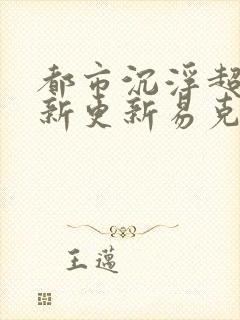 都市沉浮超
新更新易克
王邁